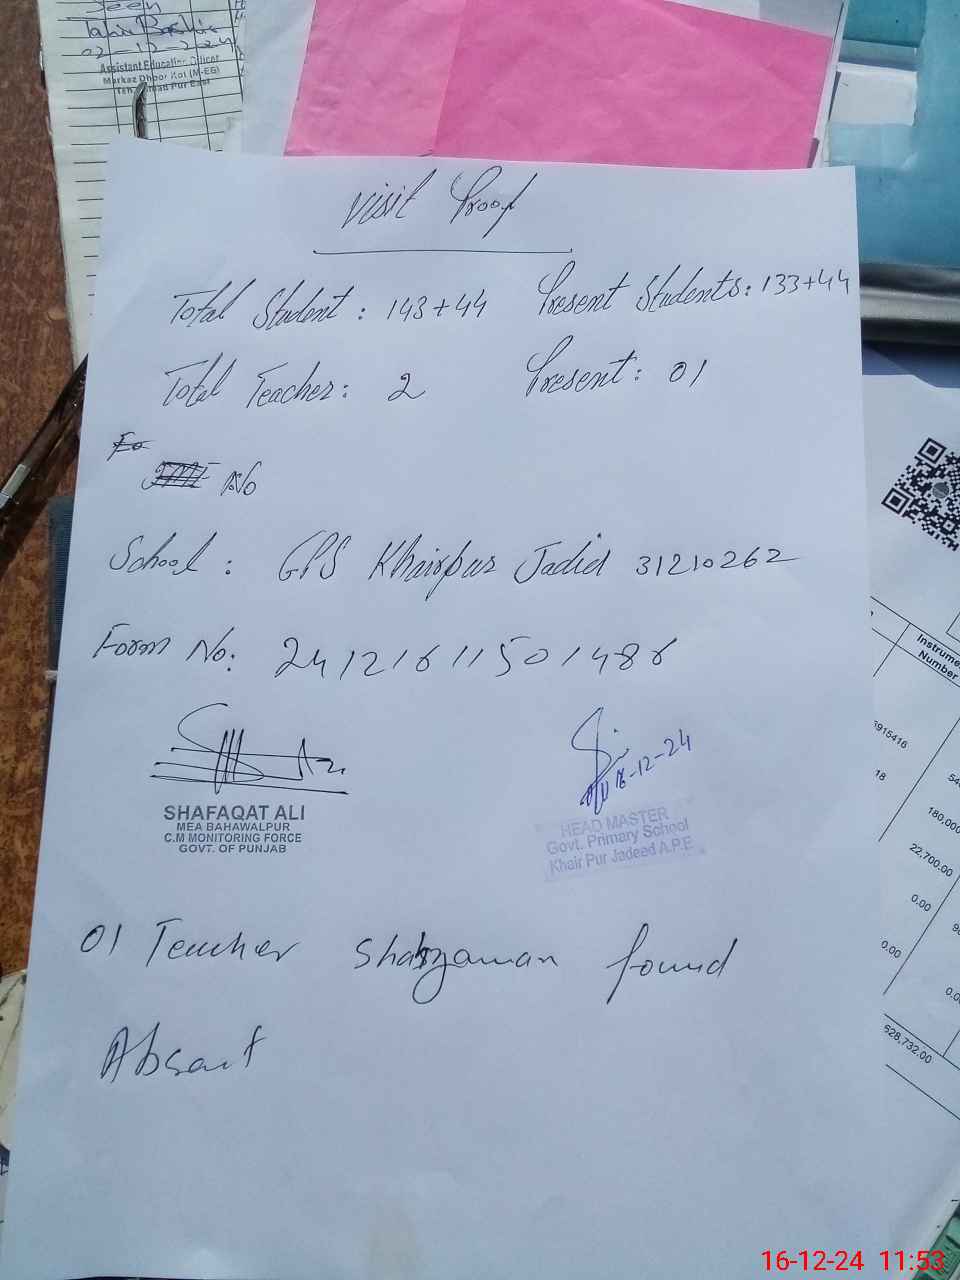 Seen
02-12-2024
Assistant Education Officer
Markaz Dhoor Kot (M-EG)
Teh. Ahmad Pur East
Visit Proof
Total Student : 143+44 Present Students: 133+44
Total Teacher: 2 Present: 01
Fo
No
School : GPS Khairpur Jadid 31210262
Form No: 24121611501486
16-12-24
SHAFAQAT ALI
MEA BAHAWALPUR
C.M MONITORING FORCE
GOVT. OF PUNJAB
HEAD MASTER
Govt. Primary School
Khair Pur Jadeed A.P.E
01 Teacher Shahzaman found
Absent
Instrume
Number
5915416
18
540
180,000
22,700.00
0.00
98
0.00
0.0
628,732.00
16-12-24 11:53